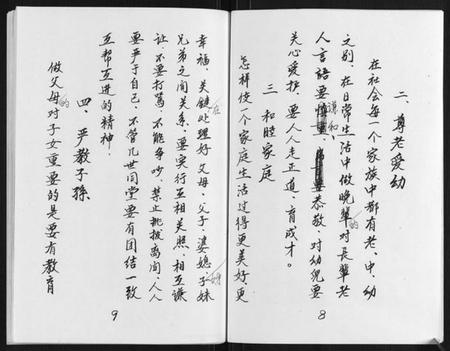 二、尊老爱幼
在社会每一个家族中都有老、中、幼
之别，在日常生活中做晚輩的对長輩老
人言語要温和，要恭敬，对幼兒要
关心爱护，要人人走正道，育成才。
三 和睦家庭
怎样使一个家庭生活过得更美好，更
8
幸福，关鍵在处理好父母、父子、婆媳、子妹
兄弟之间关系，要实行互相关照，相互谦
让，不要打罵，不能争吵，禁止挑拨离间，人人
要严于自己，不管几世同堂要有团结一致
互帮互进的精神。
四、严教子孫
做父母的对子女重要的是要有教育
9